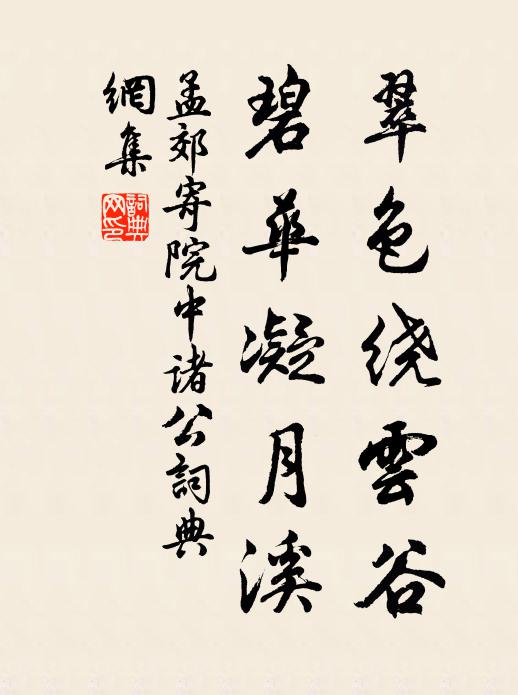 翠色绕雲谷
碧華凝月溪
孟郊寄院中诸公詞典
網集
詞典
网印